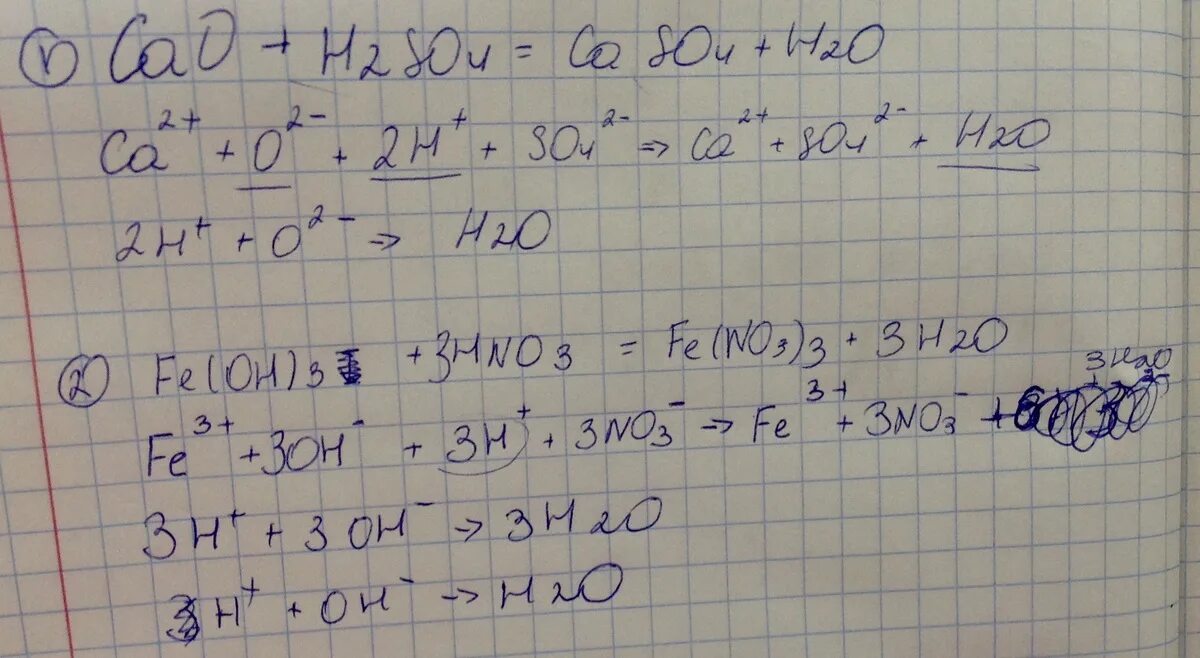 1) CaO + H2SO4 = CaSO4 + H2O
Ca²⁺ + O²⁻ + 2H⁺ + SO4²⁻ => Ca²⁺ + SO4²⁻ + H2O
2H⁺ + O²⁻ => H2O
2) Fe(OH)3 + 3HNO3 = Fe(NO3)3 + 3H2O
Fe³⁺ + 3OH⁻ + 3H⁺ + 3NO3⁻ -> Fe³⁺ + 3NO3⁻ + 3H2O
3H⁺ + 3OH⁻ -> 3H2O
H⁺ + OH⁻ -> H2O